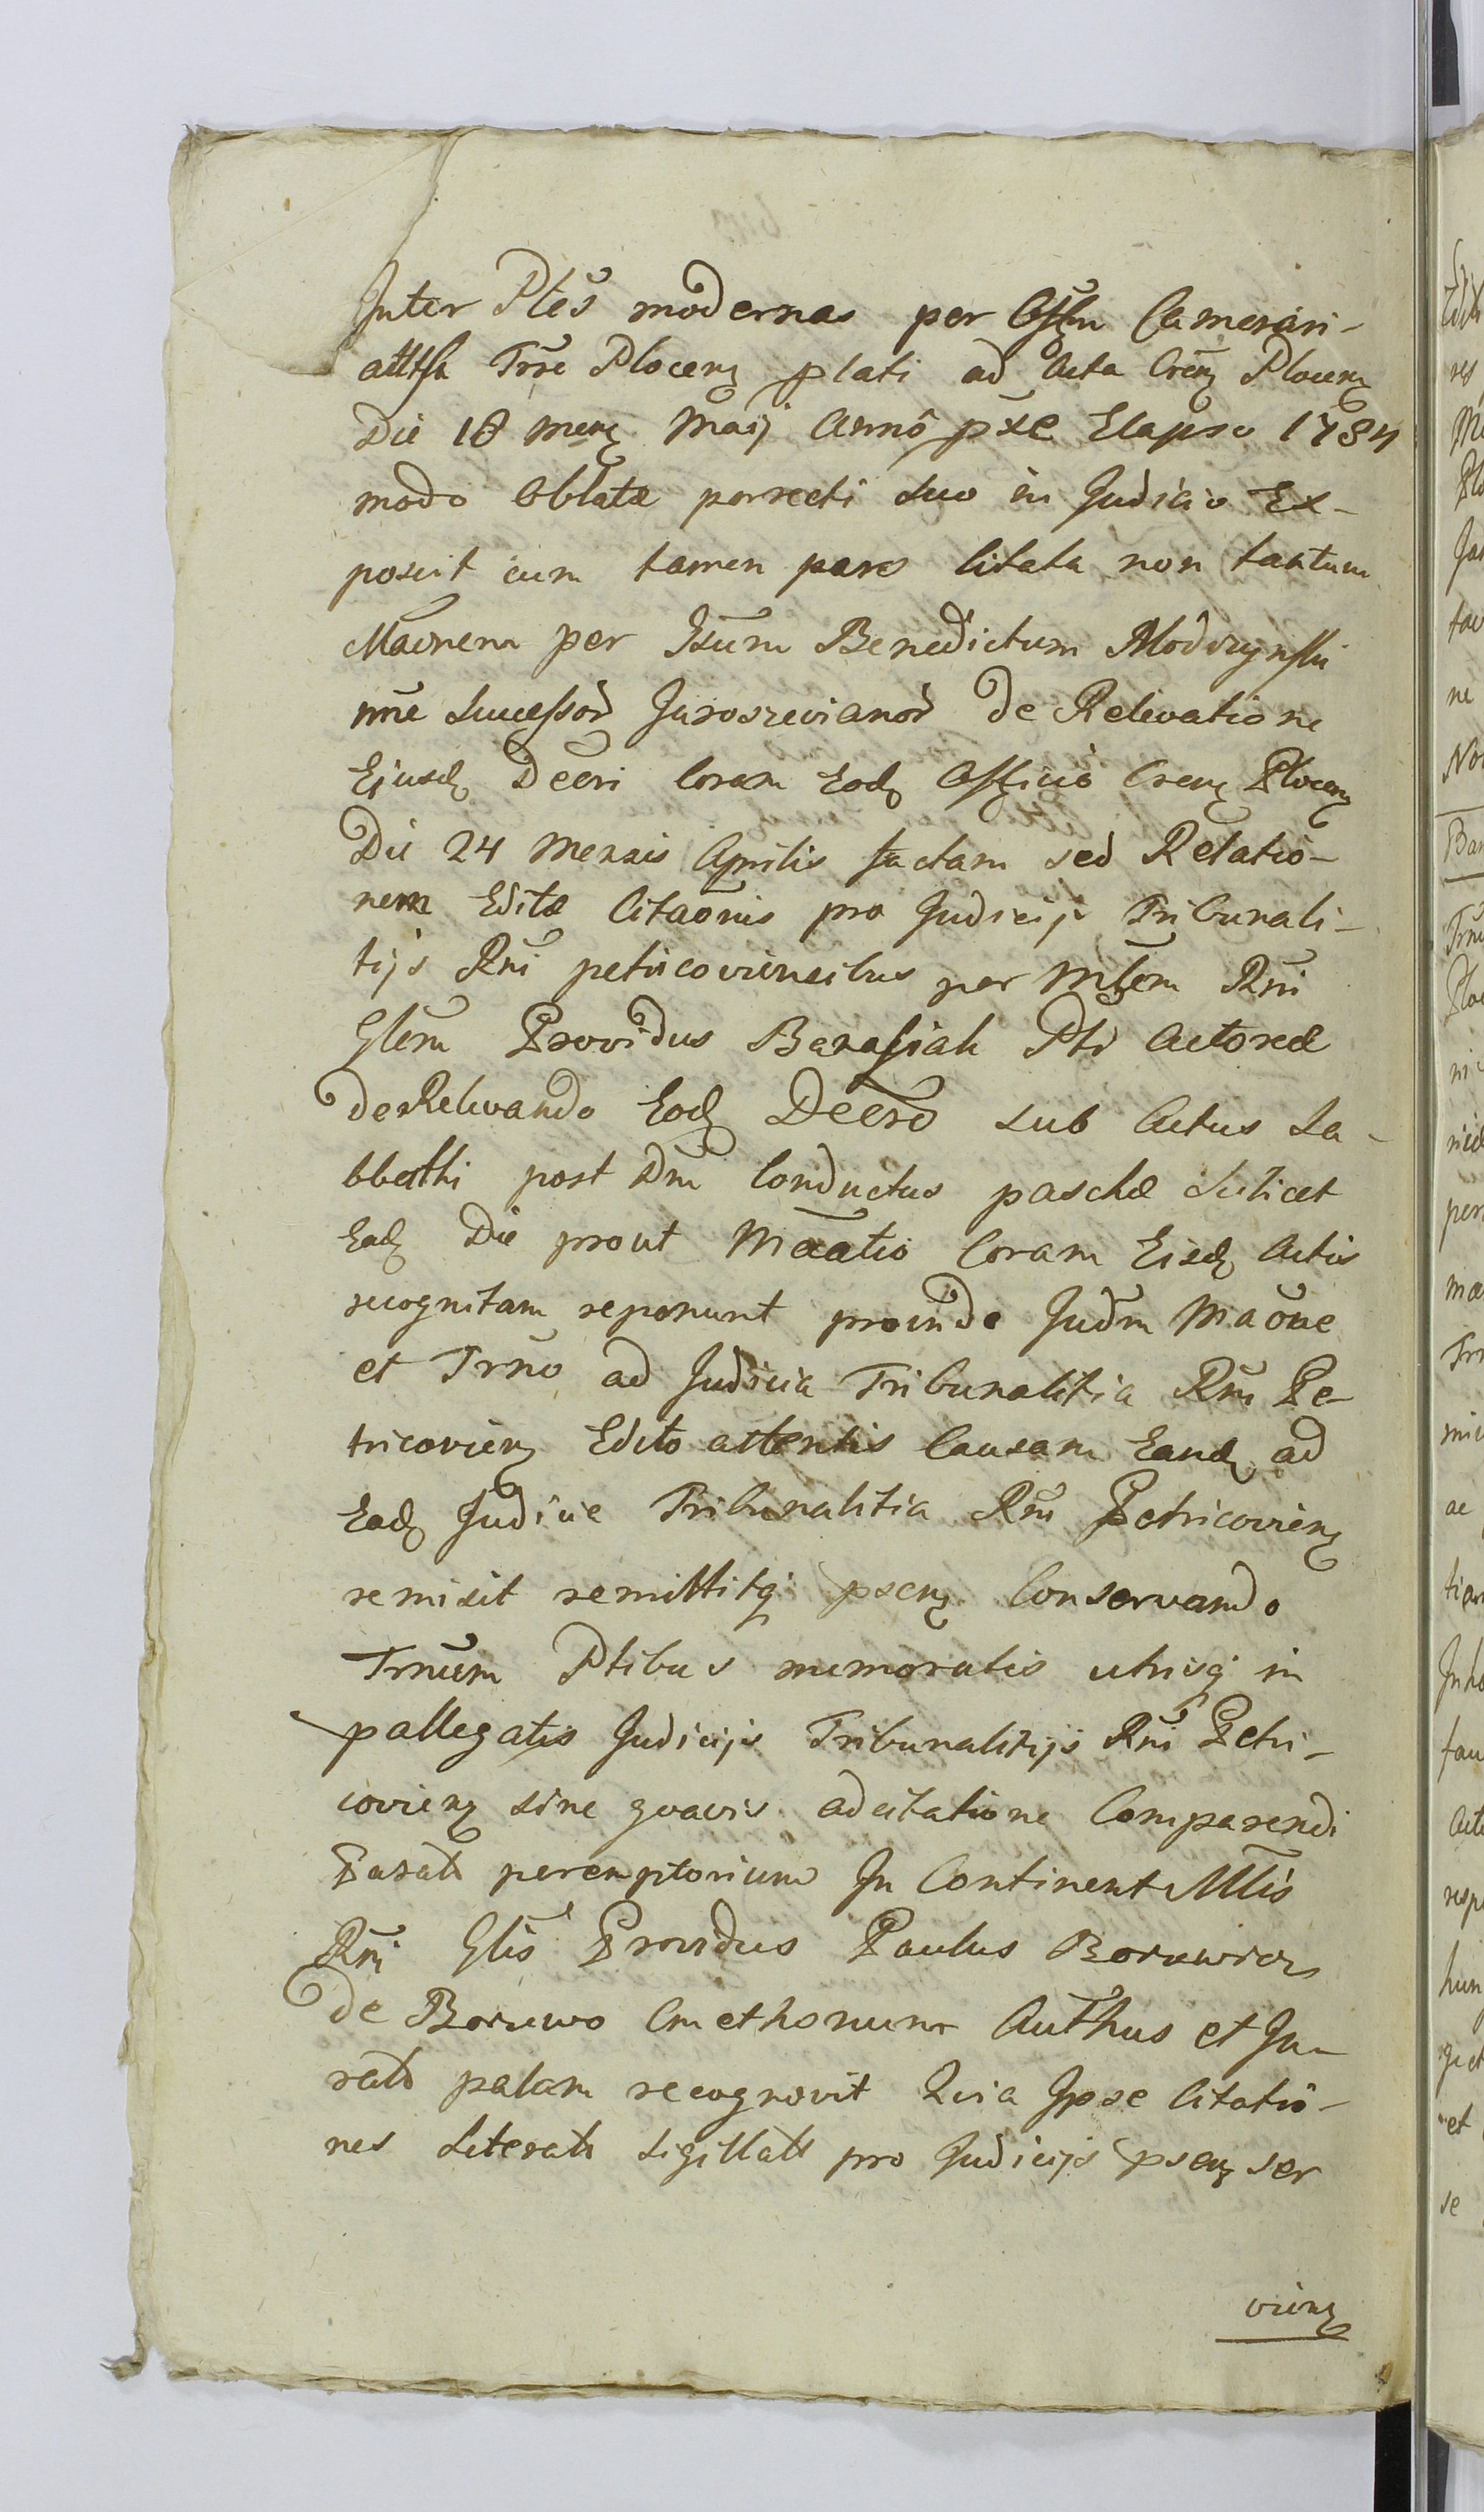 Inter Ptes modernas per Offm Camerari-
Trre Plocen plati ad Acta Cren Plocen
Die 18 men Maij Anno pxe Elapso 1784
modo Oblatæ porrecti suo in Judicio Ex-
poscit cum tamen pars Citata non tantum
Maonem per Gsum Benedictum Modrzynski
nne Successor Juroszevianor de Relevatione
Ejusd Decri Coram Eod Officio Cren Plocen
Die 24 Mensis Aprilis factam sed Relatio-
nem Editæ Citaonis pro Judicijs Tribunali-
tijs Rni petricoviensibus per Mlem Rni
Glem Providus Banasiak Pti Actoreæ
de Relevando Eod Decro sub Actus Sa-
bbathi post Dni Conductus paschæ Scilicet
Ead Die prout Maatio Coram Eisd Actis
recognitam reponunt proinde Judm Maone
et Trno ad Judicia Tribunalitia Rni Pe-
tricovien Edito attentis Causam Eand ad
Ead Judicie Tribunalitia Rni Petricovien
remisit remittitq psen Conservando
Trnum Ptibus memoratis utrisq in
pallegatis Judicijs Tribunalitijs Rni Petri-
covien sine quavis adcitatione Comparendi
Parati peremptorium In Continent Mlis
Rni Glis Providus Paulus Boruwicz
de Boruwo Cmethonum Authus et Ju-
ratus palam recognovit Quia Ipse Citatio-
nes Literat Sigillat pro Judicijs psen ser
vien